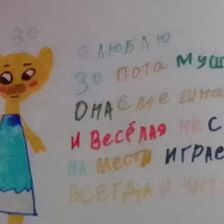 ЗО
Я ЛЮБЛЮ
ЗО ПОТА МУШ
ОНА СМЕ ШНА
И ВЕСЁЛАЯ НЕ С
НА МЕСТИ ИГРАЕ
ВСЕГДА И ЧИТ